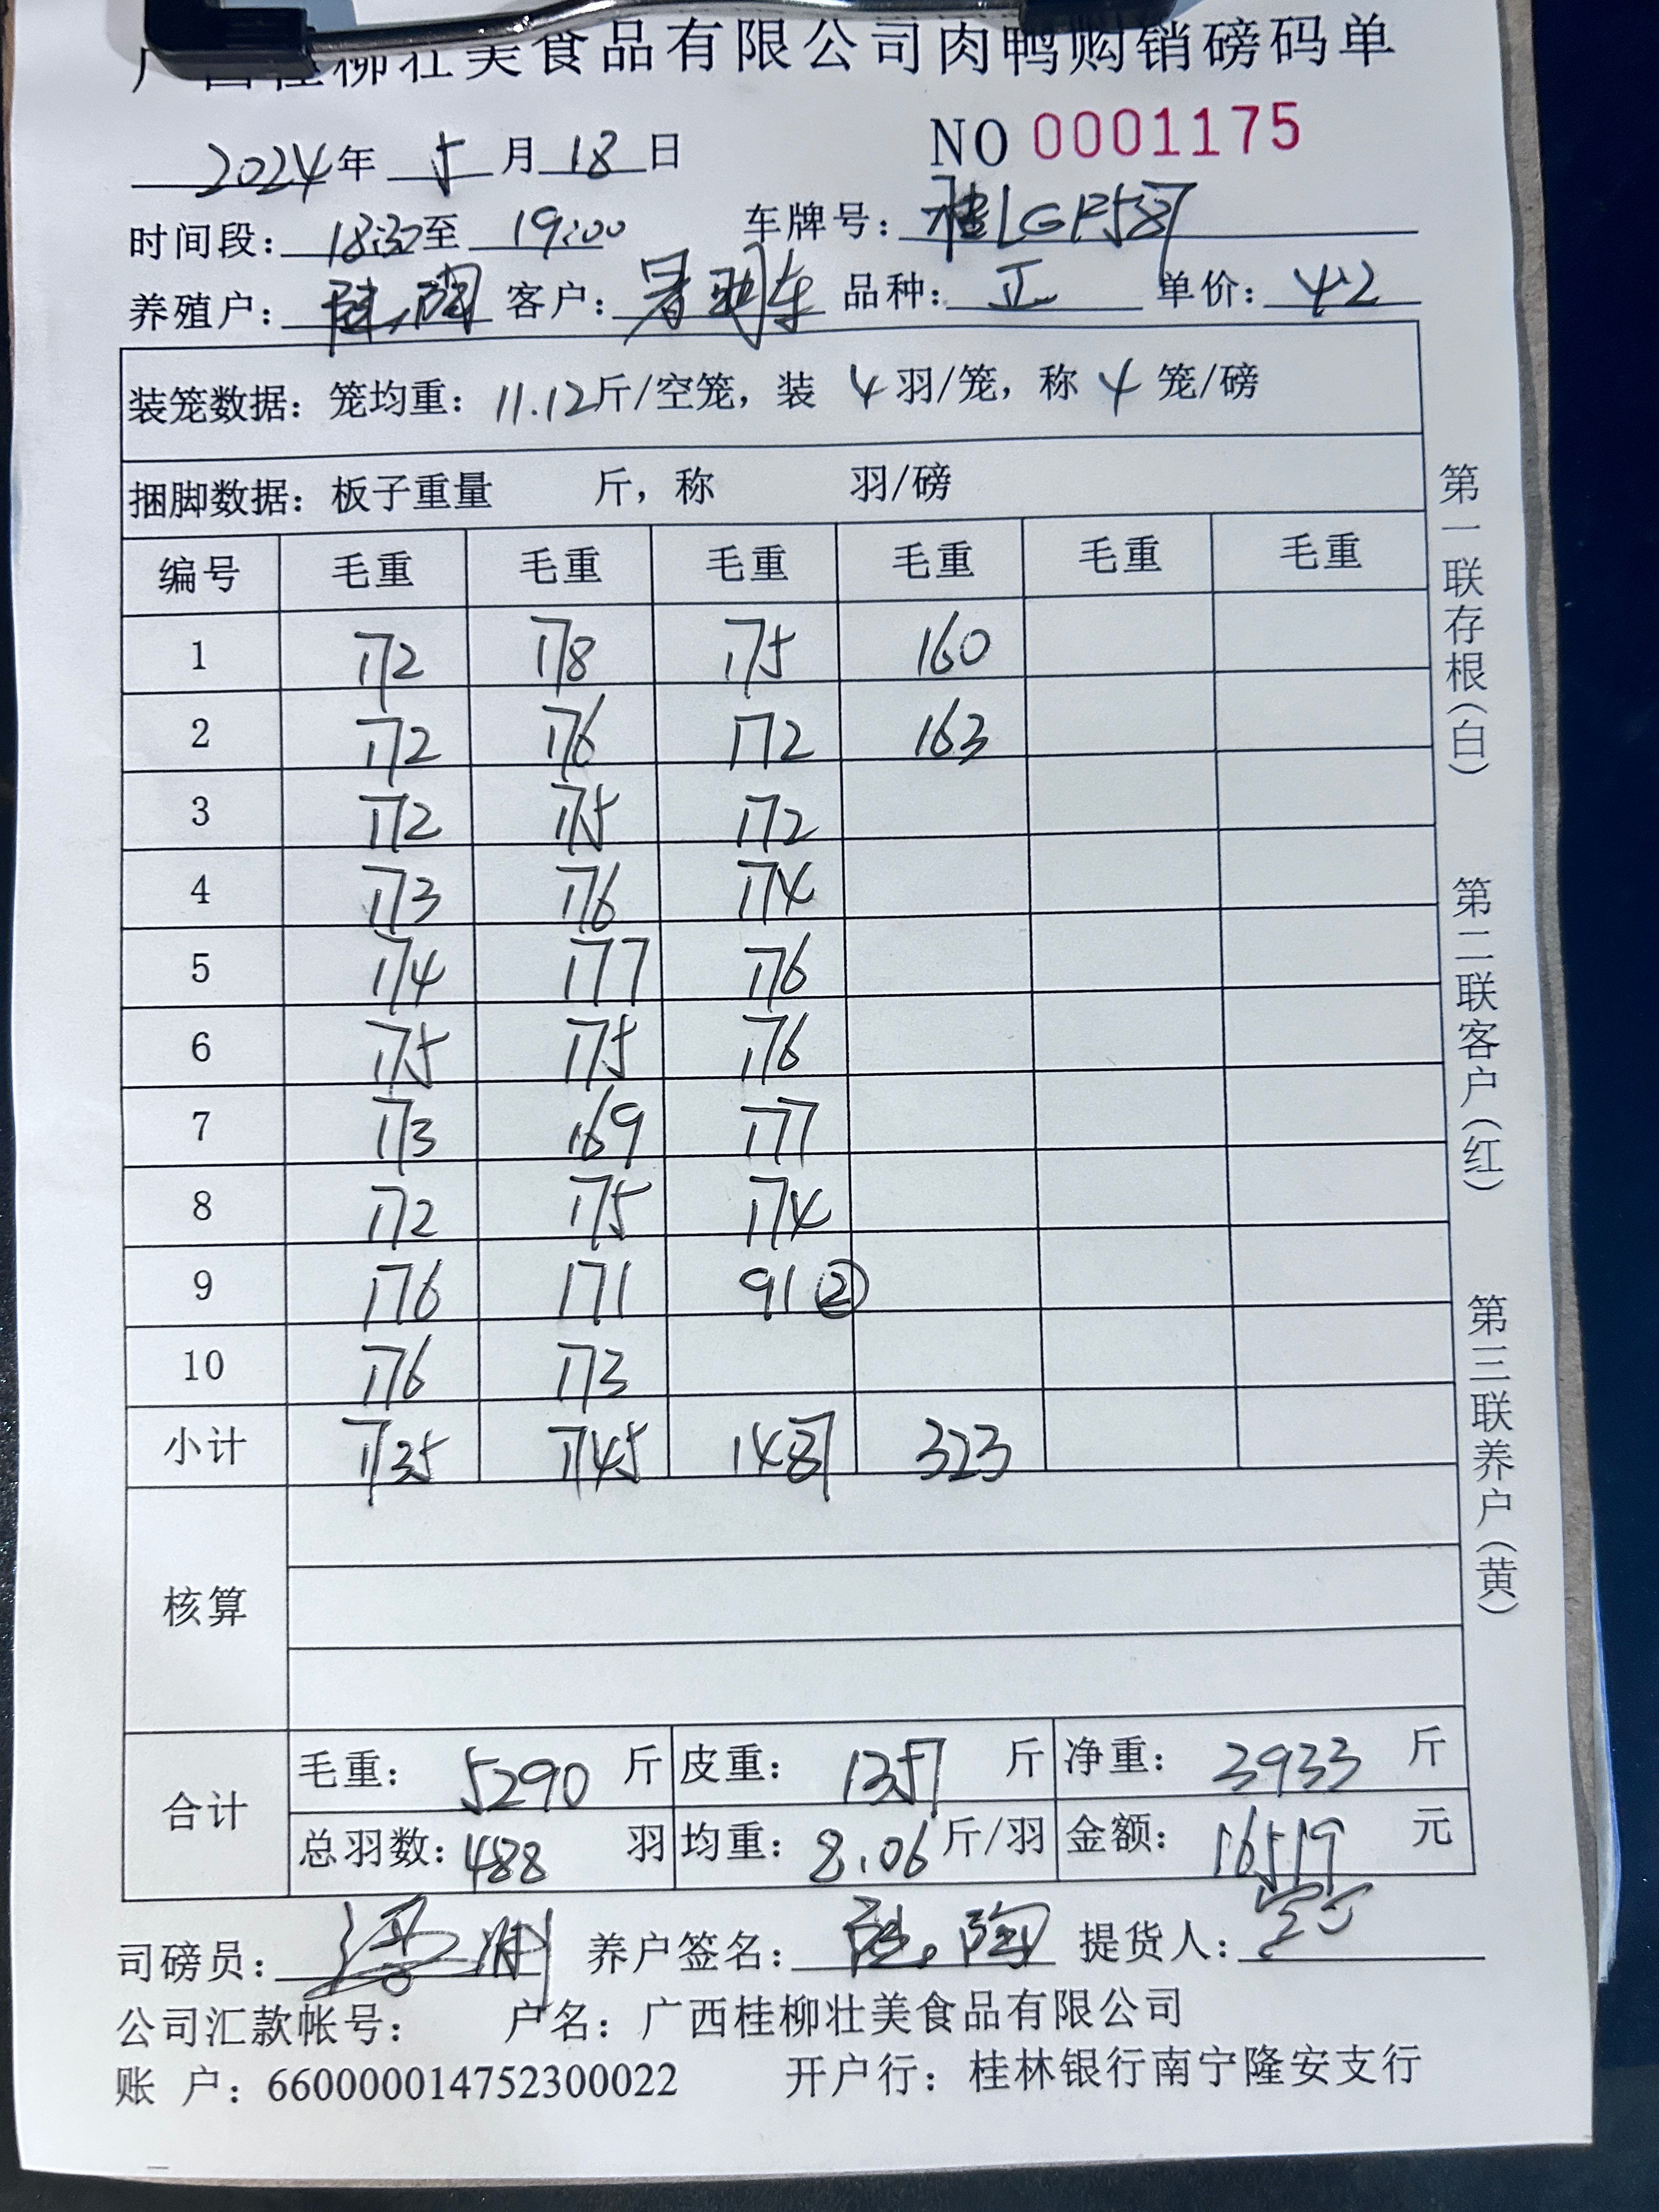 广西桂柳壮美食品有限公司肉鸭购销磅码单
2024年 5月18日 NO 0001175
时间段：18:30至 19:00 车牌号：桂LGF587
养殖户： 客户： 品种：正 单价：4.2
装笼数据：笼均重：11.12斤/空笼，装 4 羽/笼，称 4 笼/磅
捆脚数据：板子重量 斤，称 羽/磅
编号 毛重 毛重 毛重 毛重 毛重 毛重
1 172 178 175 160
2 172 176 172 163
3 172 175 172
4 173 176 174
5 174 177 176
6 175 175 176
7 173 169 177
8 172 175 174
9 176 171 91②
10 176 173
小计 1735 1745 1487 323
核算
合计 毛重：5290 斤 皮重：1357 斤 净重：3933 斤
总羽数：488 羽 均重：8.06斤/羽 金额：16519 元
司磅员： 养户签名： 提货人：
公司汇款帐号： 户名：广西桂柳壮美食品有限公司
账 户：660000014752300022 开户行：桂林银行南宁隆安支行
第一联存根（白）
第二联客户（红）
第三联养户（黄）